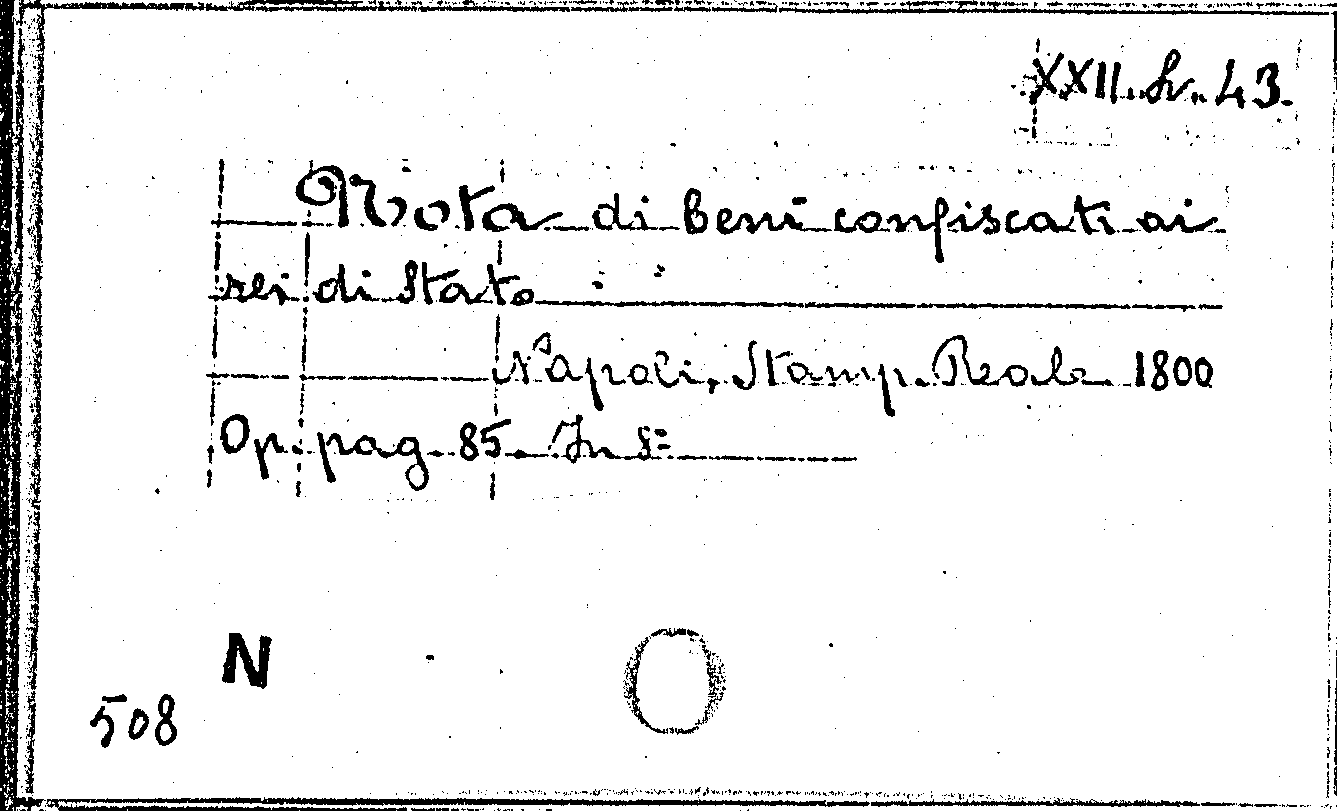 XXII. Sv. 43.
Nota di beni confiscati ai
rei di Stato
Napoli, Stamp. Reale 1800
Op. pag. 85. In 8º
N
508